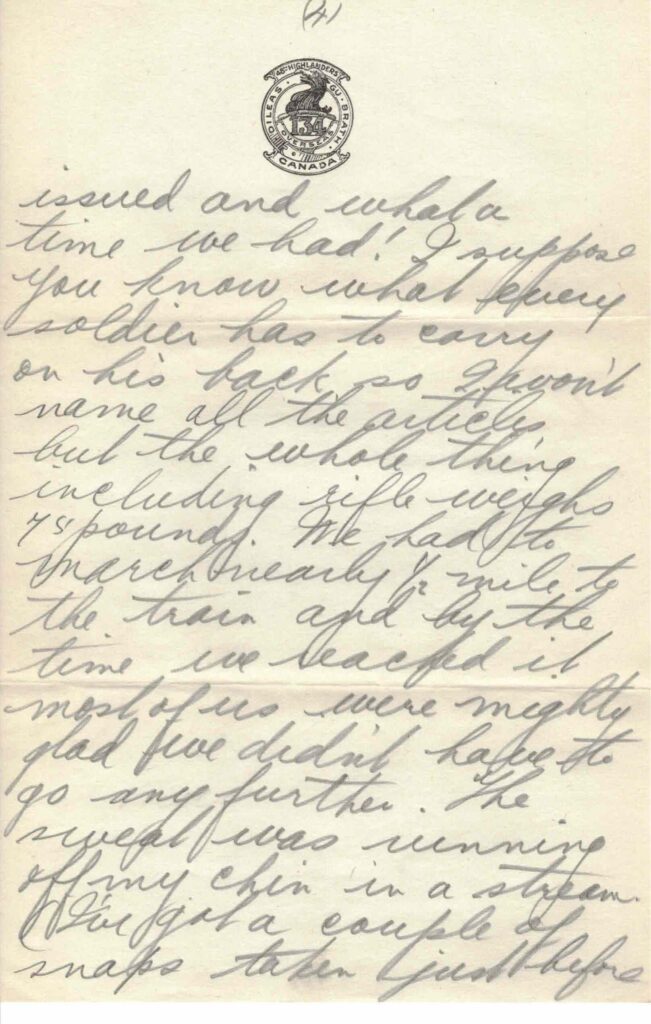 (4)
48TH HIGHLANDERS
DILEAS GU BRATH
134
OVERSEAS
CANADA
issued and what a
time we had! I suppose
you know what every
soldier has to carry
on his back so I won't
name all the articles
but the whole thing
including rifle weighs
75 pounds. We had to
march nearly 1/2 mile to
the train and by the
time we reached it
most of us were mighty
glad we didn't have to
go any further. The
sweat was running
off my chin in a stream.
I've got a couple of
snaps taken just before